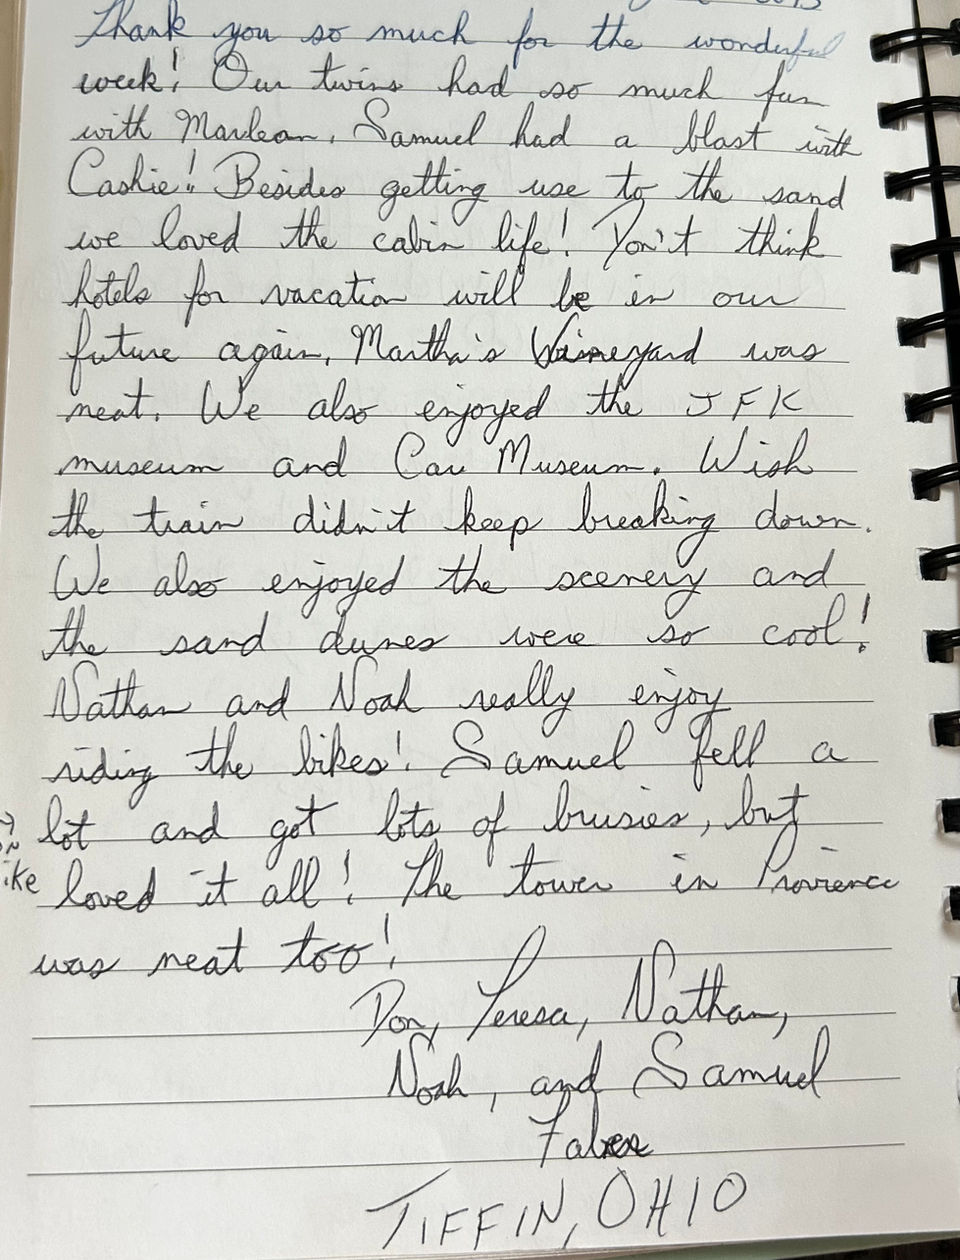 Thank you so much for the wonderful
week! Our twins had so much fun
with Marlean. Samuel had a blast with
Cashie! Besides getting use to the sand
we loved the cabin life! Don't think
hotels for vacation will be in our
future again. Martha's Vineyard was
neat. We also enjoyed the JFK
museum and Car Museum. Wish
the train didn't keep breaking down.
We also enjoyed the scenery and
the sand dunes were so cool!
Nathan and Noah really enjoy
riding the bikes! Samuel fell a
lot and got lots of brusies, but
loved it all! The tower in Provience
was neat too!
Don, Teresa, Nathan,
Noah, and Samuel
TIFFIN, OHIO